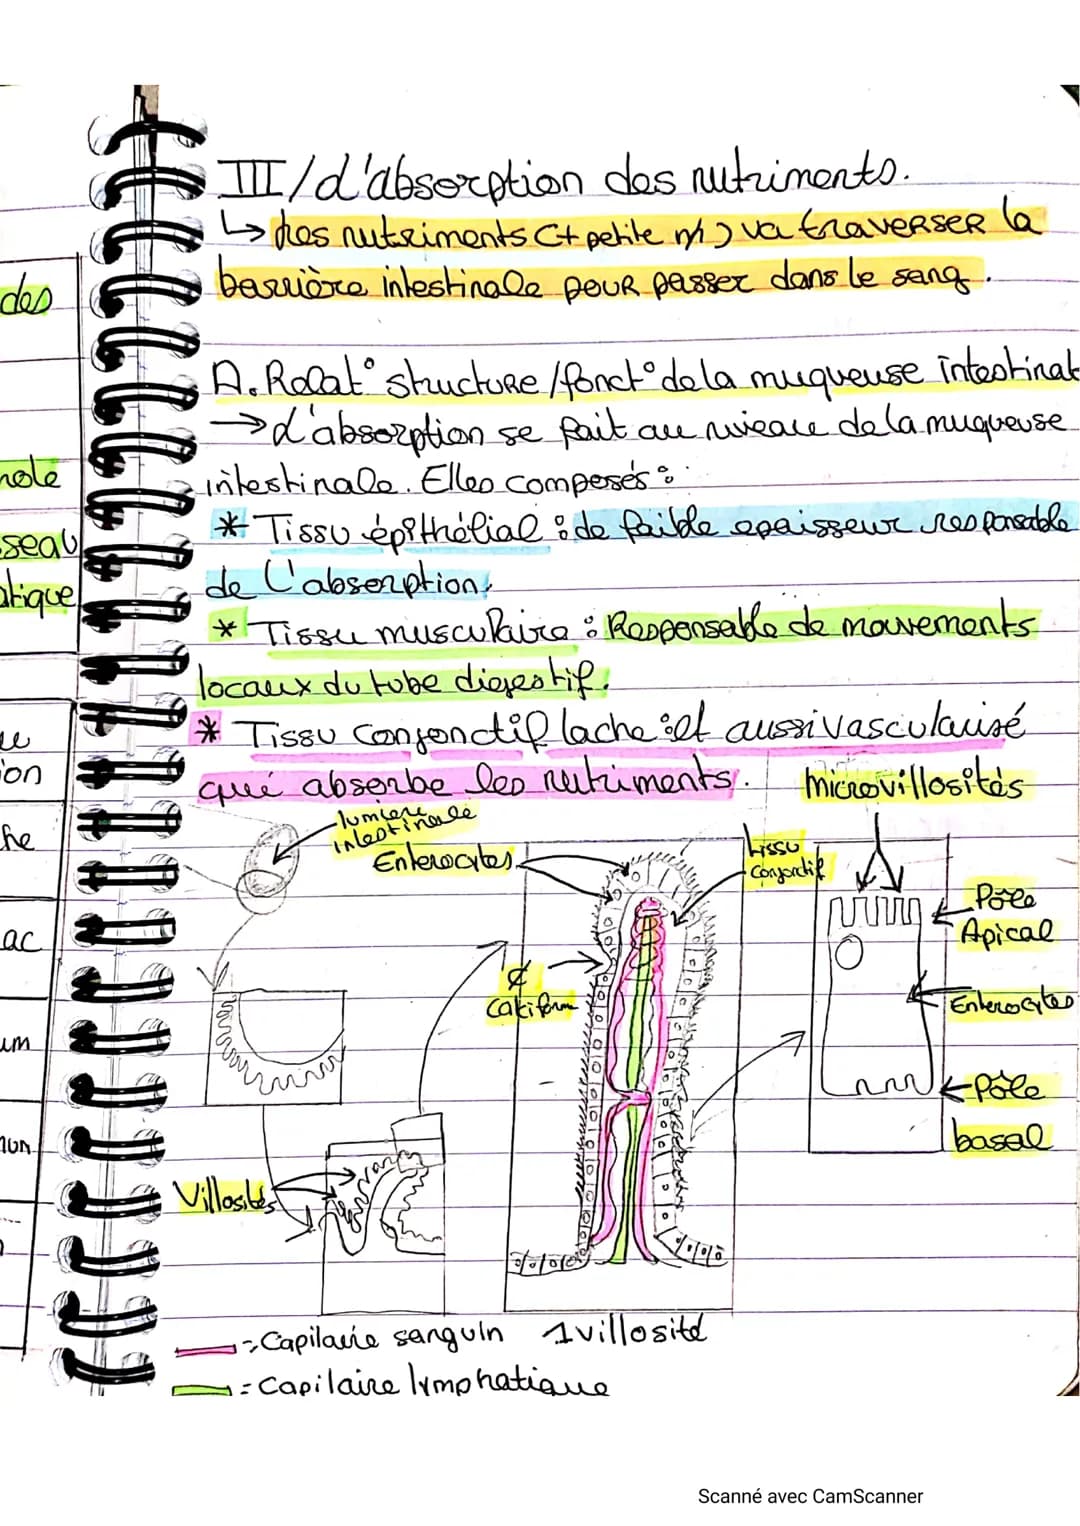 III/L'absorption des nutriments.
↳ Les nutriments (+ petite m) va traverser la
barrière intestinale pour passer dans le sang.
A. Relat° structure/fonct° de la muqueuse intestinal
→ L'absorption se fait au niveau de la muqueuse
intestinale. Elles composés :
* Tissu épithélial : de faible epaisseur responsable
de l'absorption.
* Tissu musculaire : Responsable de mouvements
locaux du tube digestif.
* Tissu conjonctif lache : et aussi vascularisé
qui absorbe les nutriments.
microvillosités
lumiere
intestinale
Enterocytes
tissu
conjonctif
Pôle
Apical
¢
caliciform
Enterocytes
Pôle
basal
Villosités
= Capilaire sanguin
1 villosité
= Capilaire lymphatique
des
role
seau
atique
ue
ion
he
ac
um
Scanné avec CamScanner